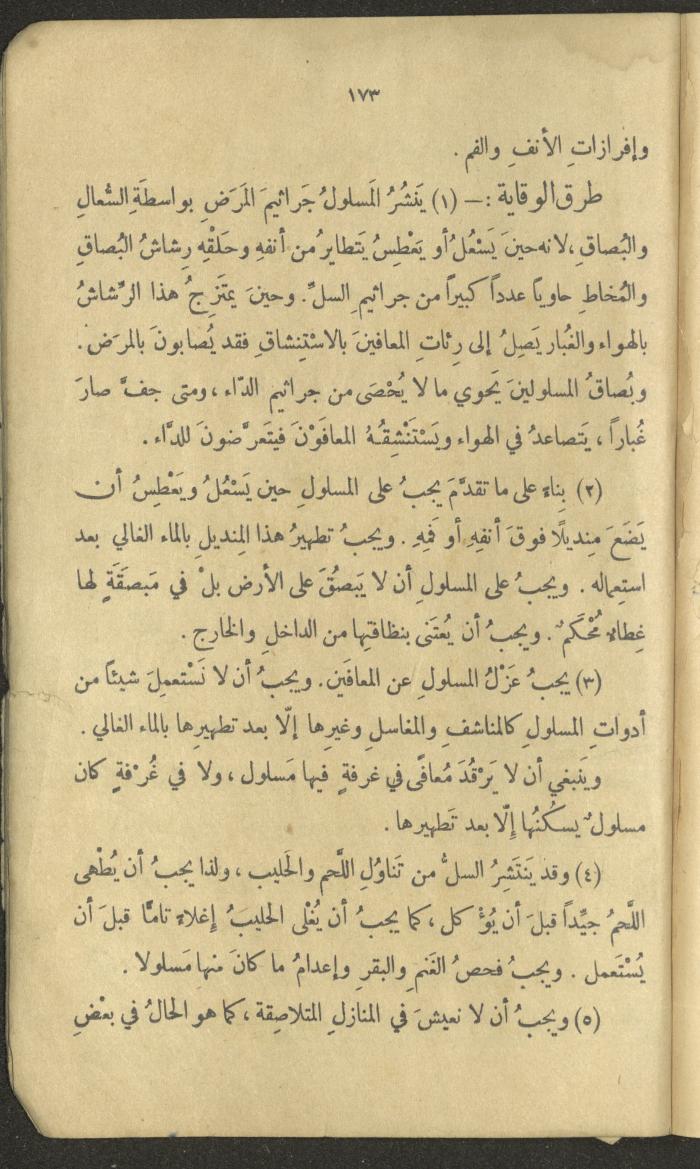 ١٧٣
وإفرازاتِ الأنفِ والفم .
طرق الوقاية : — (١) يَنشُرُ المَسلولُ جَراثيمَ المَرَضِ بواسطَةِ السُّعالِ
والبُصاقِ ، لانه حينَ يَسْعُلُ أو يَعْطِسُ يَتطايرُ من أنفهِ وحَلْقِهِ رِشاشُ البُصاقِ
والمُخاطِ حاوياً عدداً كبيراً من جراثيمِ السلِّ . وحينَ يمتَزِجُ هذا الرَّشاشُ
بالهواء والغُبار يَصِلُ إلى رِئاتِ المعافينَ بالاسْتِنشاقِ فقد يُصابونَ بالمرَض .
وبُصاقُ المسلولينَ يَحوي ما لا يُحْصَى من جراثيمِ الدّاء ، ومتى جفَّ صارَ
غُباراً ، يَتصاعدُ في الهواء ويَسْتَنْشِقُهُ المعافَوْنَ فيتَعرَّضونَ للدَّاء .
(٢) بِناءً على ما تقدَّمَ يجبُ على المسلولِ حين يَسْعُلُ ويَعْطِسُ أن
يَضَعَ مِنديلًا فوقَ أنفِهِ أو فَمِهِ . ويجبُ تطهيرُ هذا المِنديلِ بالماء الغالي بعد
استِعماله . ويجبُ على المسلولِ أن لا يَبصُقَ على الأرض بلْ في مَبصَقَةٍ لها
غِطاءٌ مُحْكَمٌ . ويجبُ أن يُعتَنى بنظافتِها من الداخلِ والخارج .
(٣) يجبُ عَزْلُ المسلولِ عن المعافَين . ويجبُ أن لا نَسْتعمِلَ شيئاً من
أدواتِ المسلولِ كالمناشفِ والمغاسلِ وغيرِها إلّا بعد تطهيرِها بالماء الغالي .
ويَنبغي أن لا يَرْقُدَ مُعافًى في غرفةٍ فيها مَسلول ، ولا في غُرْفةٍ كان
مسلولٌ يسكُنُها إِلّا بعد تَطهيرها .
(٤) وقد يَنتَشِرُ السلُّ من تَناوُلِ اللَّحمِ والحَليب ، ولذا يجبُ أن يُطْهى
اللَّحمُ جيِّداً قبلَ أن يُؤْكل ، كما يجبُ أن يُغْلى الحليبُ إغلاءً تامًّا قبلَ أن
يُسْتَعمل . ويجبُ فحصُ الغَنمِ والبقرِ وإعدامُ ما كانَ منها مَسلولا .
(٥) ويجبُ أن لا نعيشَ في المنازلِ المتلاصِقة ، كما هو الحالُ في بعْضِ